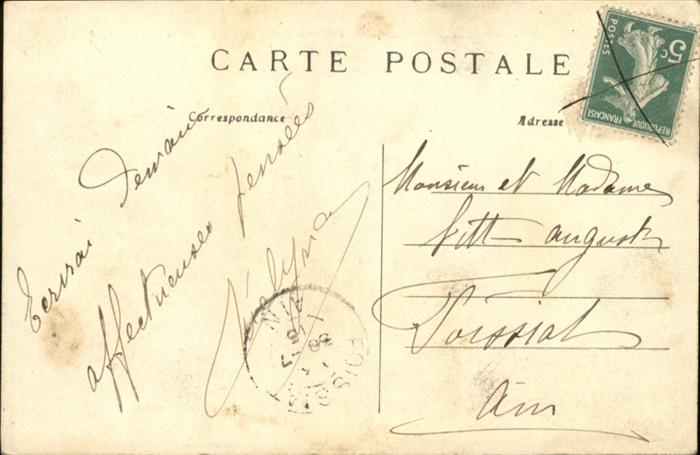 CARTE POSTALE
Correspondance
Adresse
5c
POSTES
RÉPUBLIQUE FRANÇAISE
Ecrirai Demain
affectueuses pensées
Monsieur et Madame
Vitt august
Foissiat
Ain